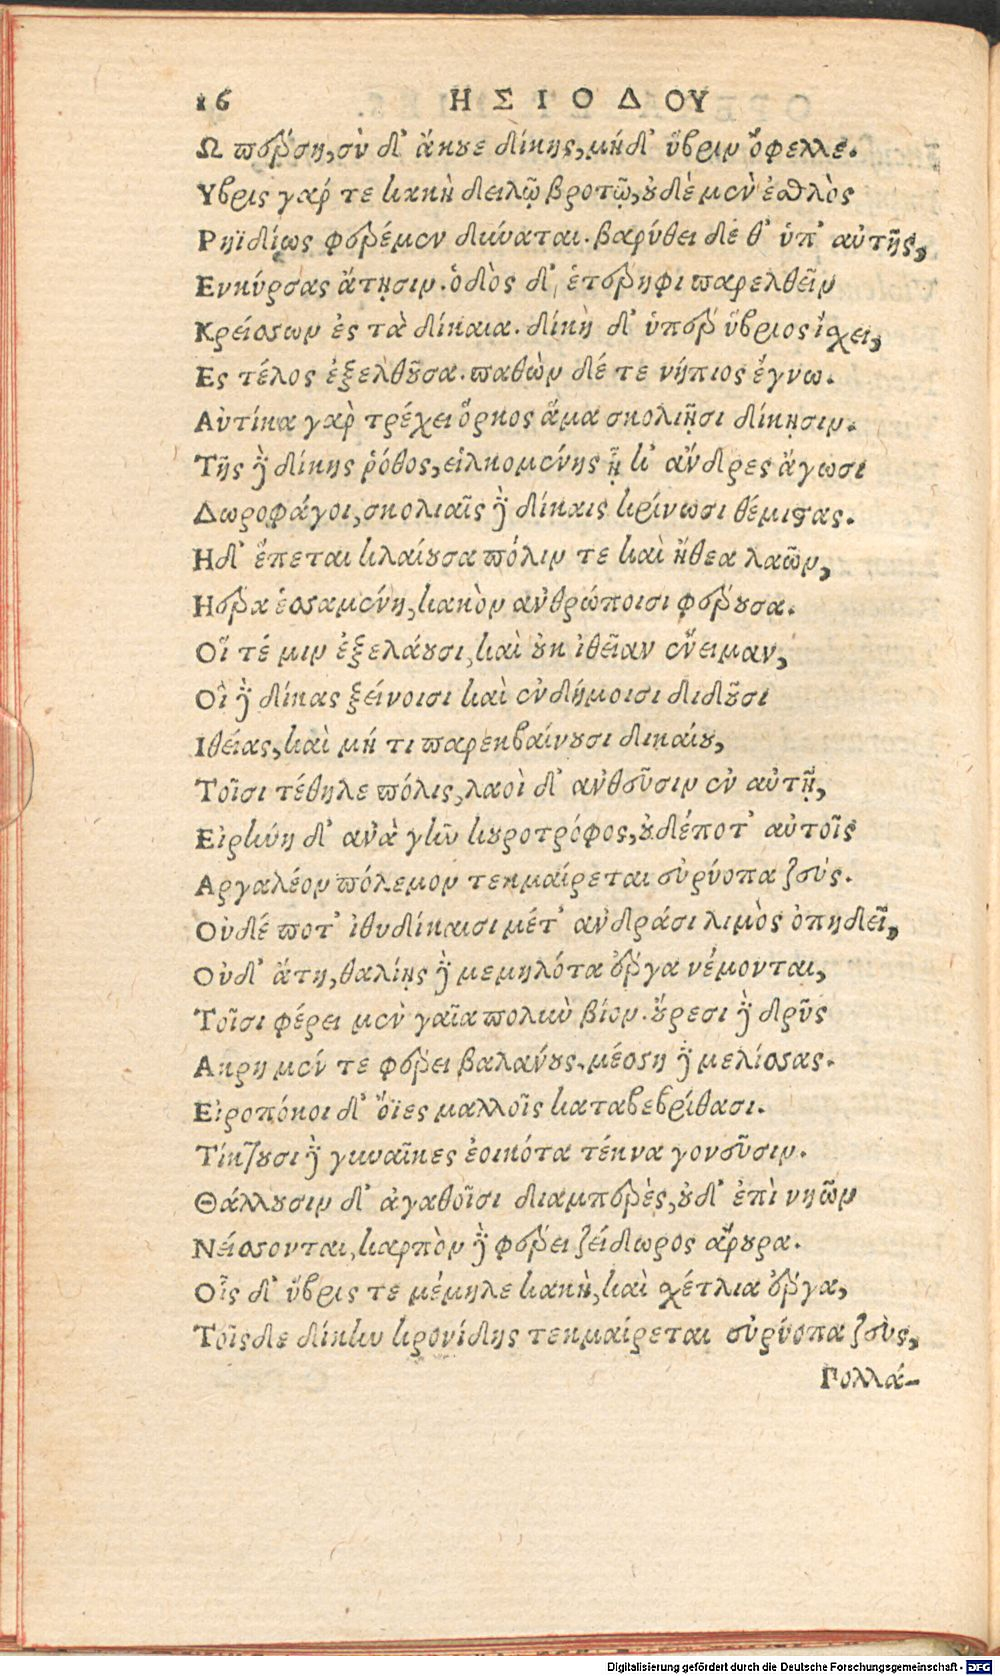 16 ΗΣΙΟΔΟΥ
Ω πέρση, σὺ δ' ἄκουε δίκης, μήδ' ὕβριν ὄφελλε.
Υβρις γάρ τε κακὴ δειλῷ βροτῷ, οὐδὲ μὲν ἐσθλὸς
Ρηϊδίως φερέμεν δύναται. βαρύθει δέ θ' ὑπ' αὐτῆς,
Ενκύρσας ἄτῃσιν. ὁδὸς δ' ἑτέρηφι παρελθεῖν
Κρείσσων ἐς τὰ δίκαια. δίκη δ' ὑπὲρ ὕβριος ἴσχει,
Ες τέλος ἐξελθοῦσα. παθὼν δέ τε νήπιος ἔγνω.
Αὐτίκα γὰρ τρέχει ὅρκος ἅμα σκολιῇσι δίκῃσιν.
Τῆς δὲ δίκης ῥόθος, εἱλκομένης ᾗ κ' ἄνδρες ἄγωσι
Δωροφάγοι, σκολιαῖς δὲ δίκαις κρίνωσι θέμιστας.
Ηδ' ἕπεται κλαίουσα πόλιν τε καὶ ἤθεα λαῶν,
Ηέρα ἑσσαμένη, κακὸν ἀνθρώποισι φέρουσα.
Οἵ τέ μιν ἐξελάουσι, καὶ οὐκ ἰθεῖαν ἔνειμαν,
Οἳ δὲ δίκας ξείνοισι καὶ ἐνδήμοισι διδοῦσι
Ιθείας, καὶ μή τι παρεκβαίνουσι δικαίου,
Τοῖσι τέθηλε πόλις, λαοὶ δ' ἀνθεῦσιν ἐν αὐτῇ,
Εἰρήνη δ' ἀνὰ γῆν κουροτρόφος, οὐδέποτ' αὐτοῖς
Αργαλέον πόλεμον τεκμαίρεται εὐρύοπα ζεύς.
Οὐδέ ποτ' ἰθυδίκαισι μέτ' ἀνδράσι λιμὸς ὀπηδεῖ,
Οὐδ' ἄτη, θαλίῃς δὲ μεμηλότα ἔργα νέμονται,
Τοῖσι φέρει μὲν γαῖα πολὺν βίον. οὔρεσι δὲ δρῦς
Ακρη μέν τε φέρει βαλάνους, μέσση δὲ μελίσσας.
Εἰροπόκοι δ' ὄϊες μαλλοῖς καταβεβρίθασι.
Τίκτουσι δὲ γυναῖκες ἐοικότα τέκνα γονεῦσιν.
Θάλλουσιν δ' ἀγαθοῖσι διαμπερὲς, οὐδ' ἐπὶ νηῶν
Νείσσονται, καρπὸν δὲ φέρει ζείδωρος ἄρουρα.
Οἷς δ' ὕβρις τε μέμηλε κακὴ, καὶ σχέτλια ἔργα,
Τοῖςδε δίκην κρονίδης τεκμαίρεται εὐρύοπα ζεὺς,
Γολλά-
Digitalisierung gefördert durch die Deutsche Forschungsgemeinschaft - DFG